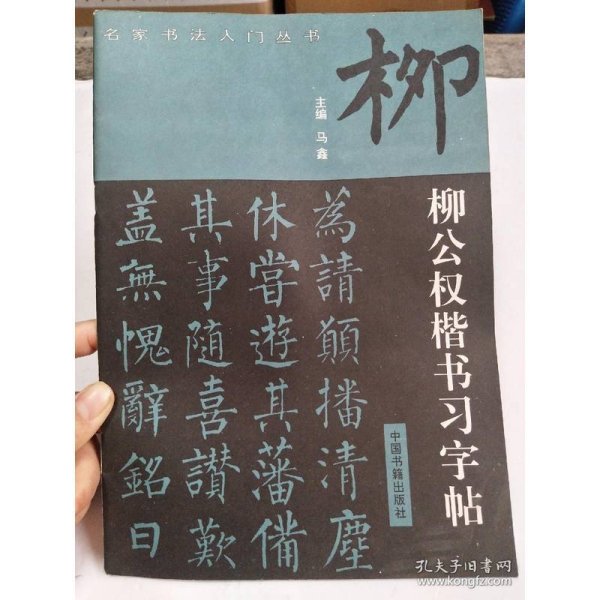 名家书法入门丛书
柳
主编 马鑫
柳公权楷书习字帖
中国书籍出版社
為請願播清塵
休嘗遊其藩備
其事随喜讃歎
盖無愧辭銘曰
孔夫子旧书网
www.kongfz.com